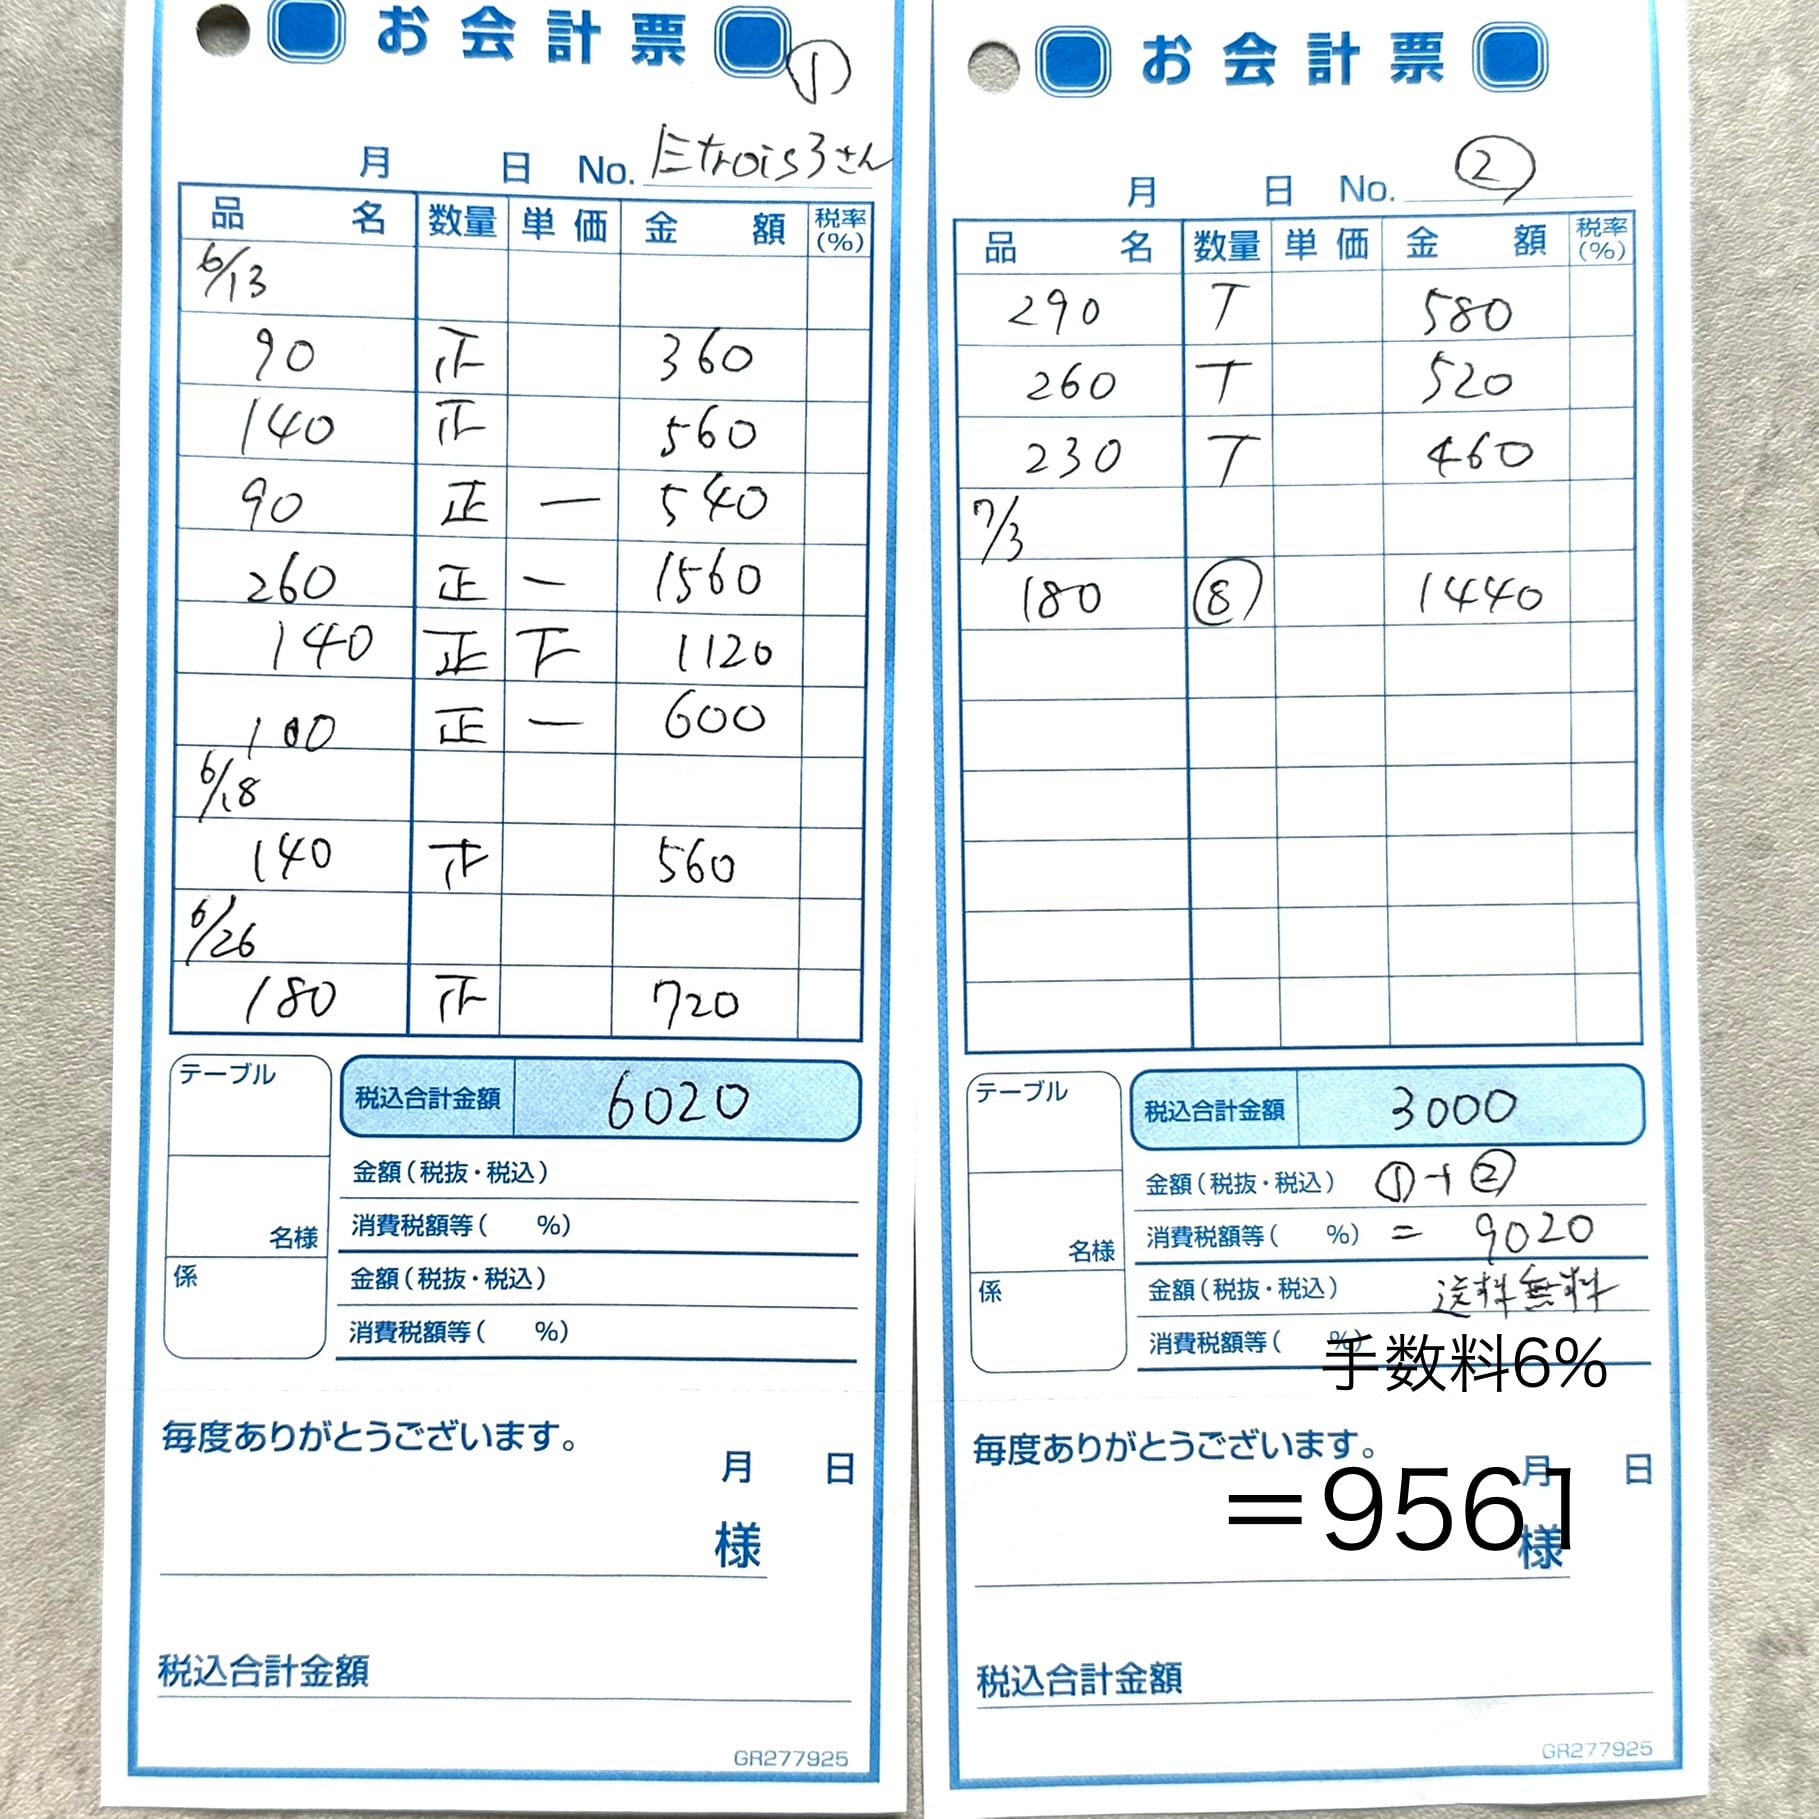 お会計票 ①
月 日 No. Etrois3さん
品名 数量 単価 金額 税率(%)
6/13
90 正 360
140 正 560
90 正 一 540
260 正 一 1560
140 正 下 1120
100 正 一 600
6/18
140 正 560
6/26
180 正 720
テーブル
税込合計金額 6020
金額(税抜・税込)
名様
消費税額等( %)
係
金額(税抜・税込)
消費税額等( %)
毎度ありがとうございます。
月 日
様
税込合計金額
GR277925
お会計票
月 日 No. ②
品名 数量 単価 金額 税率(%)
290 T 580
260 T 520
230 T 460
7/3
180 ⑧ 1440
テーブル
税込合計金額 3000
金額(税抜・税込) ①+②
名様
消費税額等( %) = 9020
係
金額(税抜・税込) 送料無料
消費税額等( %)
手数料6%
毎度ありがとうございます。
月 日
=9561
様
税込合計金額
GR277925